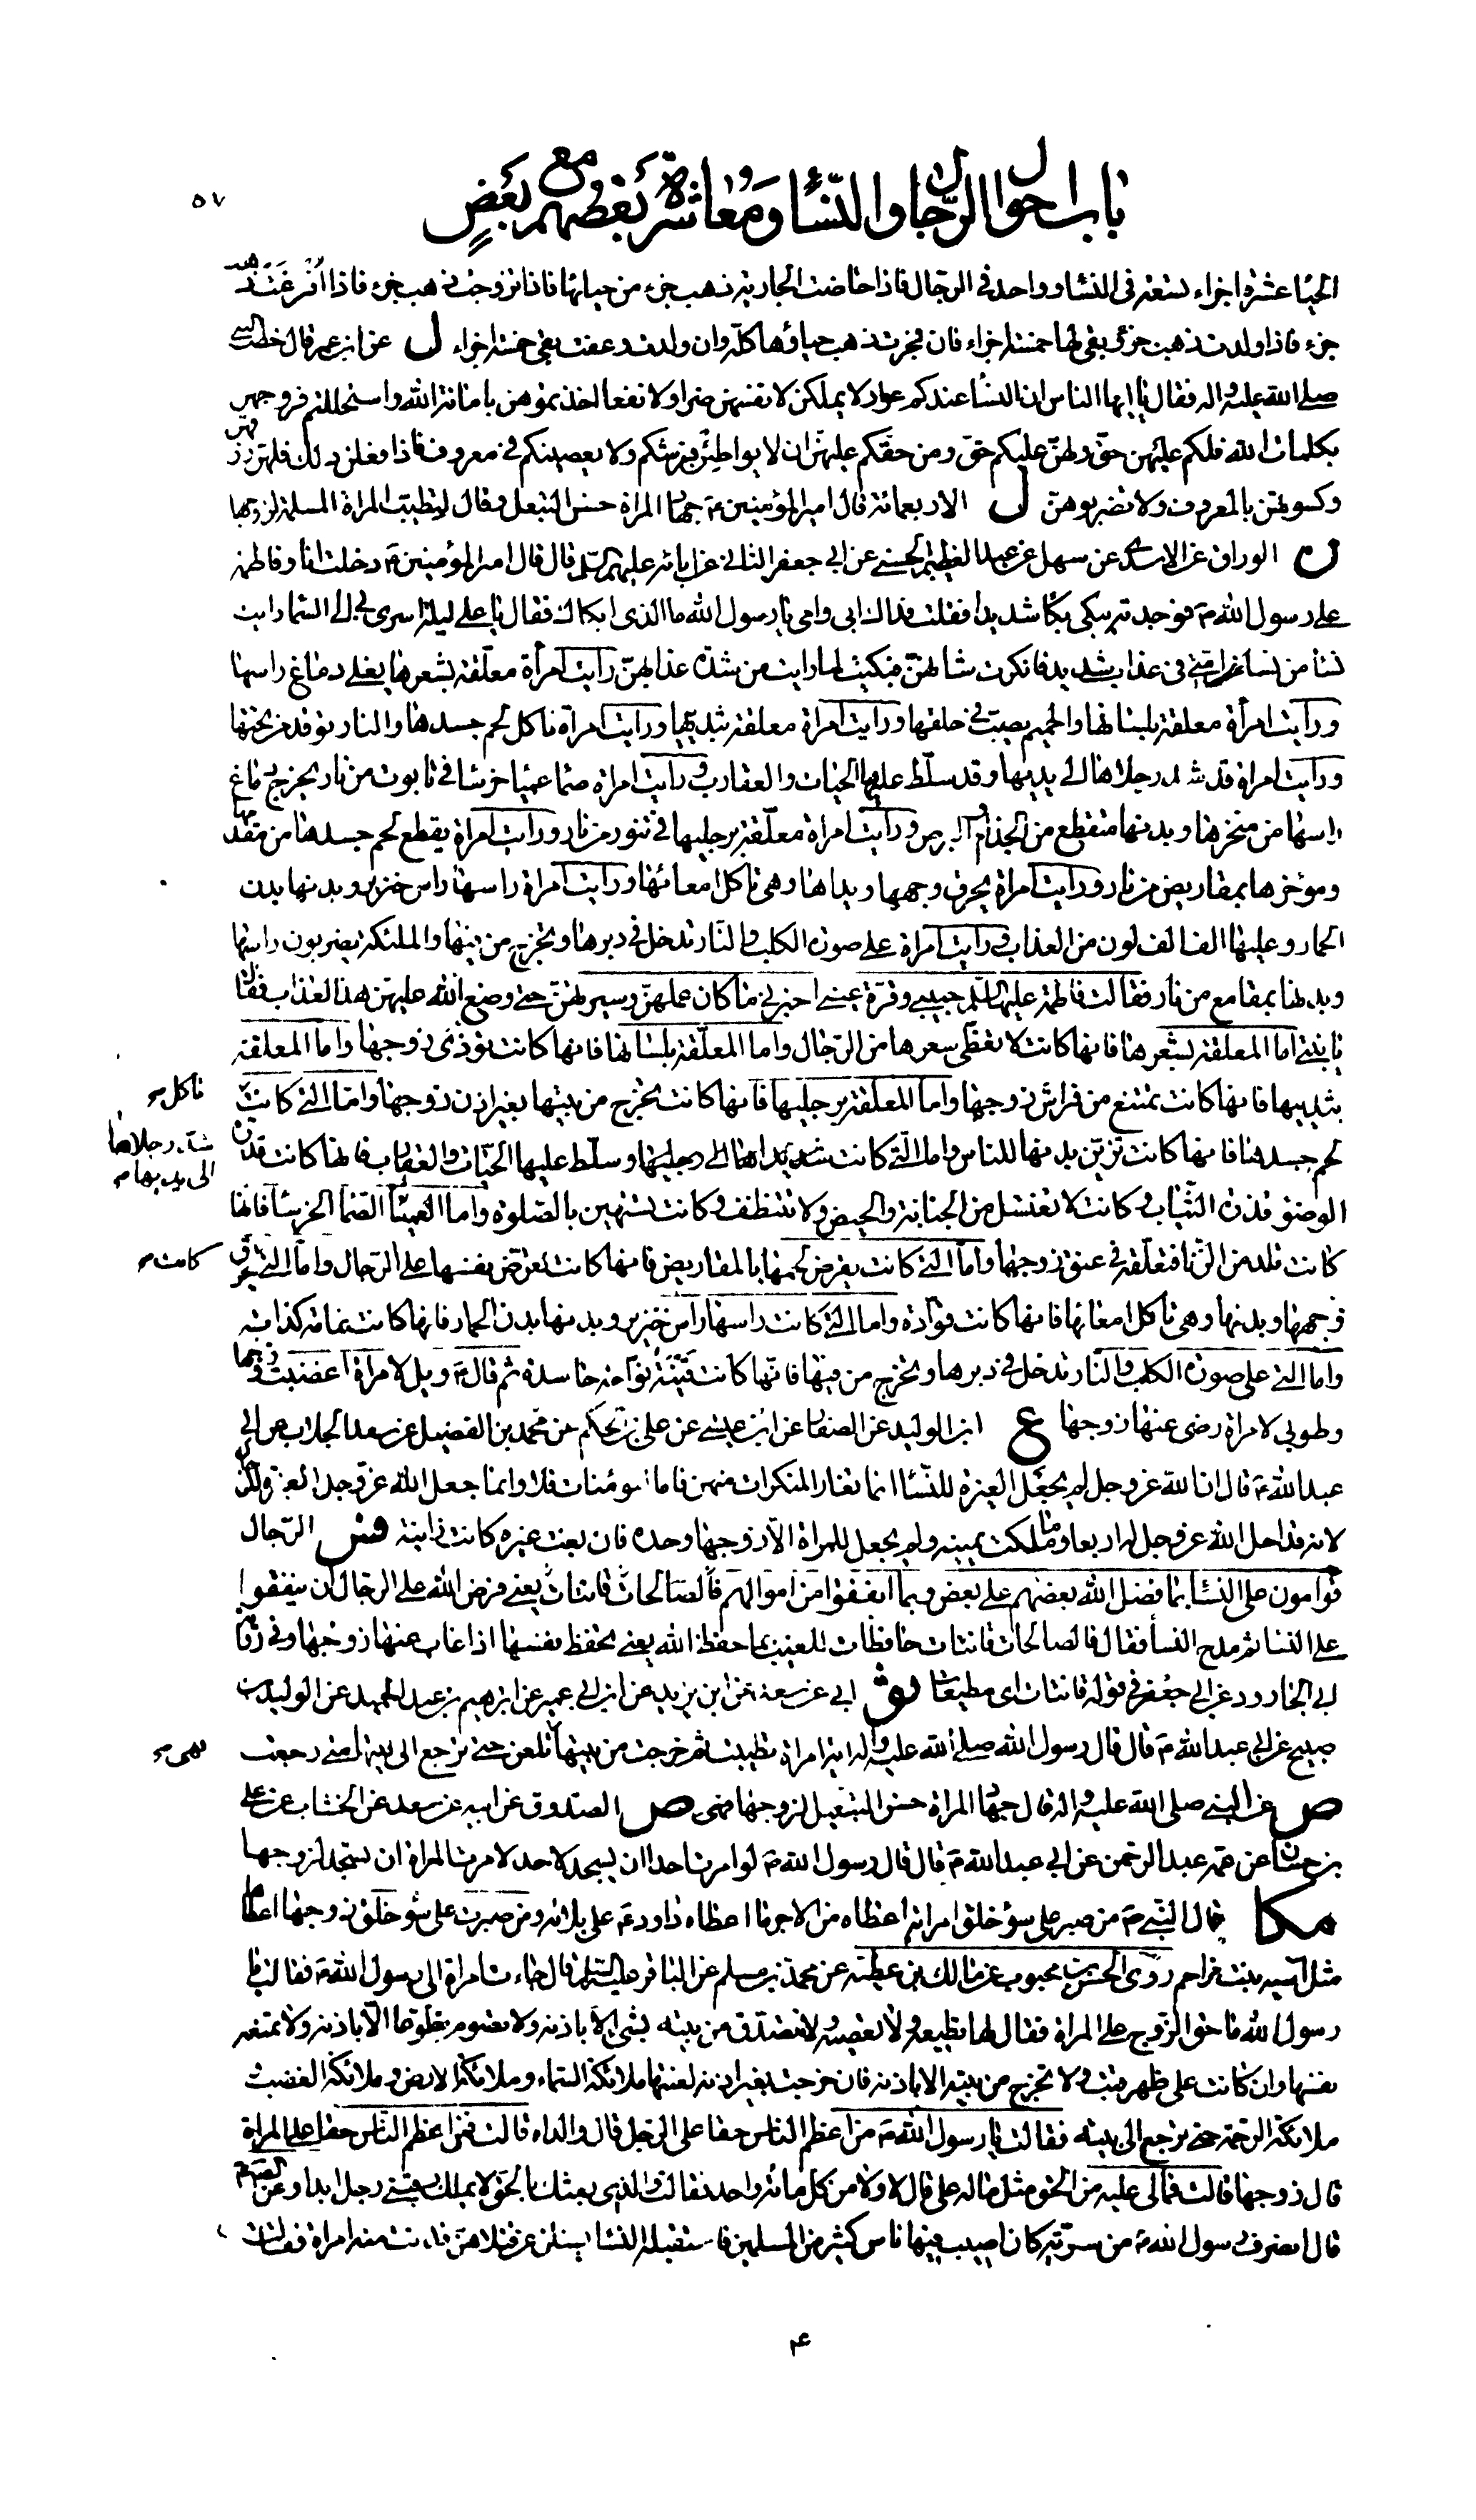 ٥٧
باب احوال الرجال والنساء ومعاشرة بعضهم مع بعض
الحياء عشرة اجزاء تسعة فى النساء وواحد فى الرجال فاذا حاضت الجارية ذهب جزء من حيائها فاذا تزوجت ذهب جزء فاذا افترعت ذهب
جزء فاذا ولدت ذهب جزء وبقى لها خمسة اجزاء فان فجرت ذهب حياؤها كله وان ولدت وعفت بقى خمسة اجزاء ل عن ابن عمر قال خطب النبى
صلى الله عليه واله فقال يا ايها الناس ان النساء عندكم عوار لا يملكن لانفسهن ضرا ولا نفعا اخذتموهن بامانة الله واستحللتم فروجهن
بكلمات الله فلكم عليهن حق ولهن عليكم حق ومن حقكم عليهن ان لا يواطئن فرشكم ولا يعصينكم فى معروف فاذا فعلن ذلك فلهن رزقهن
وكسوتهن بالمعروف ولا تضربوهن ل الاربعمائة قال امير المؤمنين ع جهاد المراة حسن التبعل وقال لتطيب المراة المسلمة لزوجها
ن الوراق عن الاسدى عن سهل عن عبد العظيم الحسنى عن ابى جعفر الثانى عن ابائه عليهم السلم قال قال امير المؤمنين ع دخلت انا وفاطمة
على رسول الله ص فوجدته يبكى بكاء شديدا فقلت فداك ابى وامى يا رسول الله ما الذى ابكاك فقال يا على ليلة اسرى بى الى السماء رايت
نساء من نساء امتى فى عذاب شديد فانكرت شانهن فبكيت لما رايت من شدة عذابهن رايت امرأة معلقة بشعرها يغلى دماغ راسها
ورايت امرأة معلقة بلسانها والحميم يصب فى حلقها ورايت امراة معلقة بثدييها ورايت امراة تاكل لحم جسدها والنار توقد من تحتها
ورايت امراة قد شد رجلاها الى يديها وقد سلط عليها الحيات والعقارب ورايت امراة صماء عمياء خرساء فى تابوت من نار يخرج دماغ
راسها من منخرها وبدنها متقطع من الجذام والبرص ورايت امراة معلقة برجليها فى تنور من نار ورايت امراة يقطع لحم جسدها من مقدمها
ومؤخرها بمقاريض من نار ورايت امراة يحرق وجهها ويداها وهى تاكل امعائها ورايت امراة راسها راس خنزير وبدنها بدن
الحمار وعليها الف الف لون من العذاب ورايت امراة على صورة الكلب والنار تدخل فى دبرها وتخرج من فيها والملئكة يضربون راسها
وبدنها بمقامع من نار فقالت فاطمة عليها السلم حبيبى وقرة عينى اخبرنى ما كان عملهن وسيرتهن حتى وضع الله عليهن هذا العذاب فقال
يا بنتى اما المعلقة بشعرها فانها كانت لا تغطى شعرها من الرجال واما المعلقة بلسانها فانها كانت تؤذى زوجها واما المعلقة
بثدييها فانها كانت تمتنع من فراش زوجها واما المعلقة برجليها فانها كانت تخرج من بيتها بغير اذن زوجها واما التى كانت
تاكل
لحم جسدها فانها كانت تزين بدنها للناس واما التى كانت شد يداها الى رجليها وسلط عليها الحيات والعقارب فانها كانت قذرة
شد رجلاها
الى يديها
الوضوء قذرة الثياب وكانت لا تغتسل من الجنابة والحيض ولا تتنظف وكانت تستهين بالصلوة واما العمياء الصماء الخرساء فانها
كانت تلد من الزنا فتعلقه فى عنق زوجها واما التى كانت يقرض لحمها بالمقاريض فانها كانت تعرض نفسها على الرجال واما التى يحرق
كانت
وجهها وبدنها وهى تاكل امعائها فانها كانت قوادة واما التى كانت راسها راس خنزير وبدنها بدن الحمار فانها كانت نمامة كذابة
واما التى على صورة الكلب والنار تدخل فى دبرها وتخرج من فيها فانها كانت قينة نواحة حاسدة ثم قال ص ويل لامراة اغضبت زوجها
وطوبى لامراة رضى عنها زوجها ع ابن الوليد عن الصفار عن ابن عيسى عن على بن الحكم عن محمد بن الفضيل عن سعد الجلاب عن ابى
عبد الله ع قال ان الله عز وجل لم يجعل الغيرة للنساء انما تغار المنكرات منهن فاما المؤمنات فلا وانما جعل الله عز وجل الغيرة للرجال
لانه قد احل الله عز وجل له اربعا وما ملكت يمينه ولم يجعل للمراة الا زوجها وحده فان بغت غيره كانت زانية فس الرجال
قوامون على النساء بما فضل الله بعضهم على بعض وبما انفقوا من اموالهم فالصالحات قانتات يعنى فرض الله على الرجال ان ينفقوا
على النساء ثم مدح النساء فقال فالصالحات قانتات حافظات للغيب بما حفظ الله يعنى تحفظ نفسها اذا غاب عنها زوجها وفى رواية
ابى الجارود عن ابى جعفر فى قوله قانتات اى مطيعات ثو ابى عن سعد عن ابن يزيد عن ابن ابى عمير عن ابرهيم بن عبد الحميد عن الوليد بن
صبيح عن ابى عبد الله ع قال قال رسول الله صلى الله عليه واله اية امراة تطيبت ثم خرجت من بيتها تلعن حتى ترجع الى بيتها متى رجعت
فهى
ص عن النبى صلى الله عليه واله قال جهاد المراة حسن التبعل لزوجها ص الصدوق عن ابيه عن سعد عن الخشاب عن على
بن حسان عن عمه عبد الرحمن عن ابى عبد الله ع قال قال رسول الله ص لو امرت احدا ان يسجد لاحد لامرت المراة ان تسجد لزوجها
مكا قال النبى ص من صبر على سوء خلق امراته اعطاه من الاجر ما اعطاه داود ع على بلائه ومن صبرت على سوء خلق زوجها اعطاها
مثل آسية بنت مزاحم روى الحسن بن محبوب عن مالك بن عطية عن محمد بن مسلم عن الباقر عليه السلم قال جاءت امراة الى رسول الله ص فقالت يا
رسول الله ما حق الزوج على المراة فقال لها تطيعه ولا تعصيه ولا تتصدق من بيته بشئ الا باذنه ولا تصوم تطوعا الا باذنه ولا تمنعه
نفسها وان كانت على ظهر قتب ولا تخرج من بيته الا باذنه فان خرجت بغير اذنه لعنتها ملائكة السماء وملائكة الارض وملائكة الغضب
ملائكة الرحمة حتى ترجع الى بيته فقالت يا رسول الله ص من اعظم الناس حقا على الرجل قال والداه قالت فمن اعظم الناس حقا على المراة
قال زوجها قالت فمالى عليه من الحق مثل ماله على قال لا ولا من كل مائة واحد فقالت والذى بعثك بالحق لا يملك رقبتى رجل ابدا وعن
قال انصرف رسول الله ص من سرية كان اصيب فيها ناس كثير من المسلمين فاستقبله النساء يسئلن عن قتلاهن فدنت منه امراة فقالت
۴